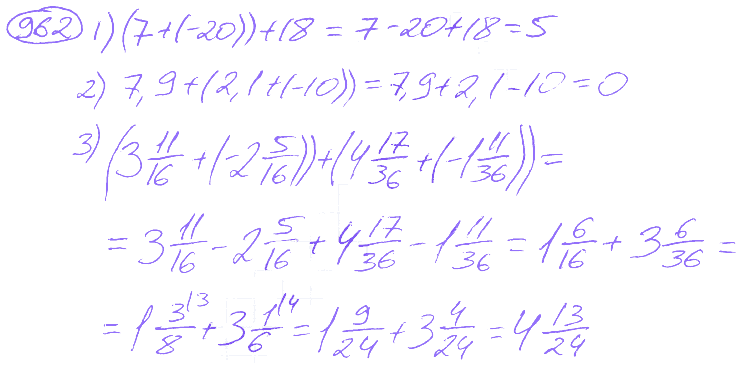 962 1) (7+(-20))+18 = 7-20+18=5
2) 7,9+(2,1+(-10))=7,9+2,1-10=0
3) (3 11/16 + (-2 5/16)) + (4 17/36 + (-1 11/36)) =
= 3 11/16 - 2 5/16 + 4 17/36 - 1 11/36 = 1 6/16 + 3 6/36 =
= 1 3/8 \3 + 3 1/6 \4 = 1 9/24 + 3 4/24 = 4 13/24